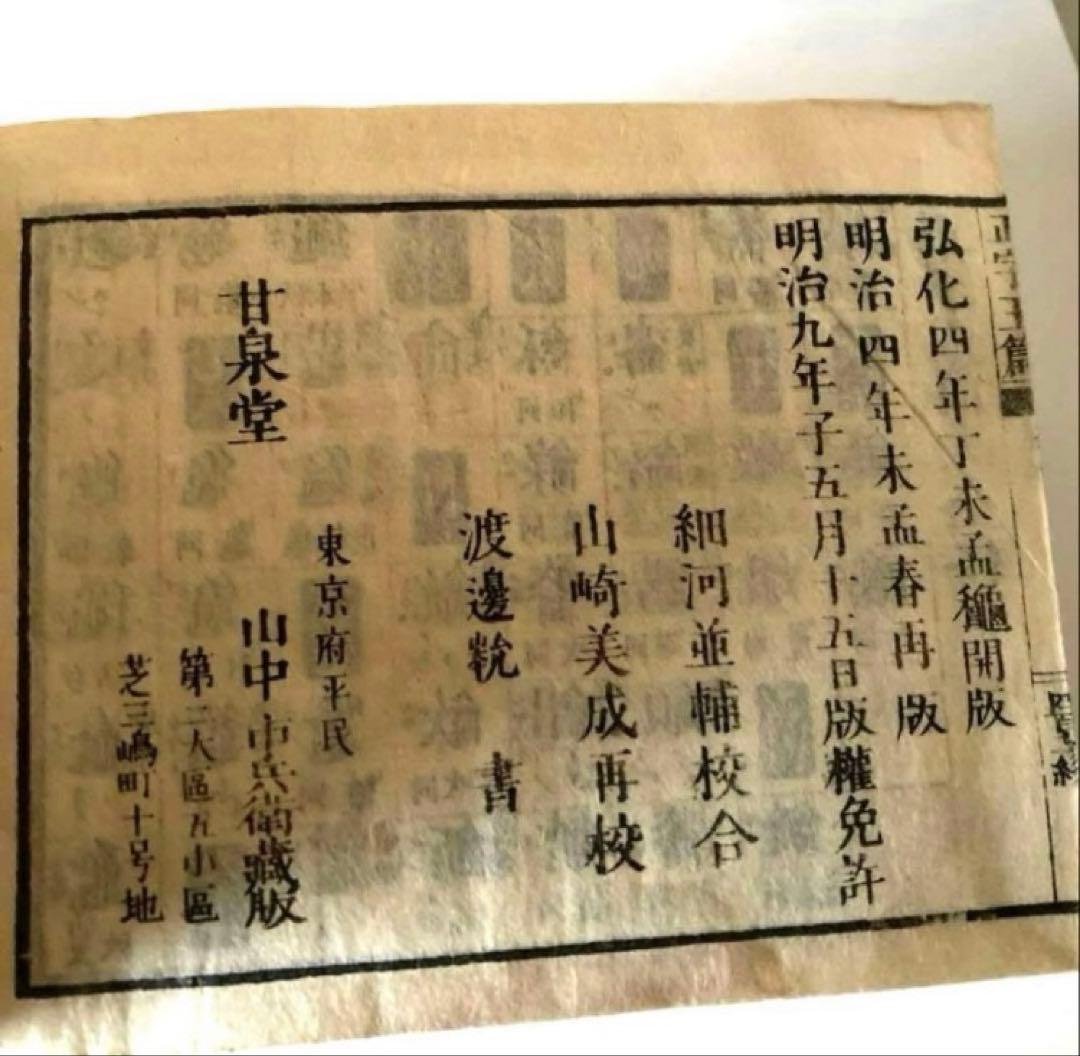 弘化四年丁未孟龝開版
明治四年未孟春再版
明治九年子五月十五日版權免許
細河並輔校合
山崎美成再校
渡邊 書
東京府平民
甘泉堂 山中市兵衛藏版
第二大區五小區
芝三嶋町十号地